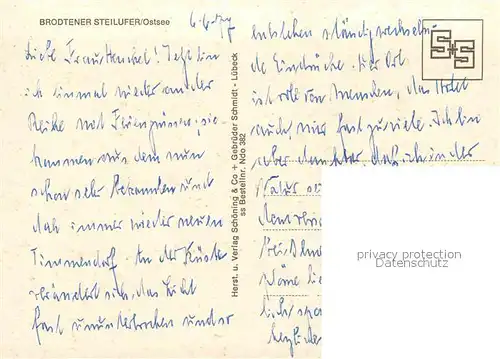 BRODTENER STEILUFER/Ostsee
6.6.77
Liebe Frau Henschel! Jetzt bin
ich einmal wieder an der
Reihe mit Feriengrüssen, sie
kommen aus dem nun
schon sehr bekannten und
doch immer wieder neuen
Timmendorf. An der Küste
verändert sich das Licht
fast ununterbrochen und so
Herst. u. Verlag Schöning & Co + Gebrüder Schmidt · Lübeck
ss Bestellnr. Ndo 382
entstehen ständig wechseln-
de Eindrücke. Der Ort
ist voll von Menschen, das Hotel
auch, mir fast zu viele. Ich bin
aber dankbar, daß ich in der
Natur
S+S
privacy protection
Datenschutz